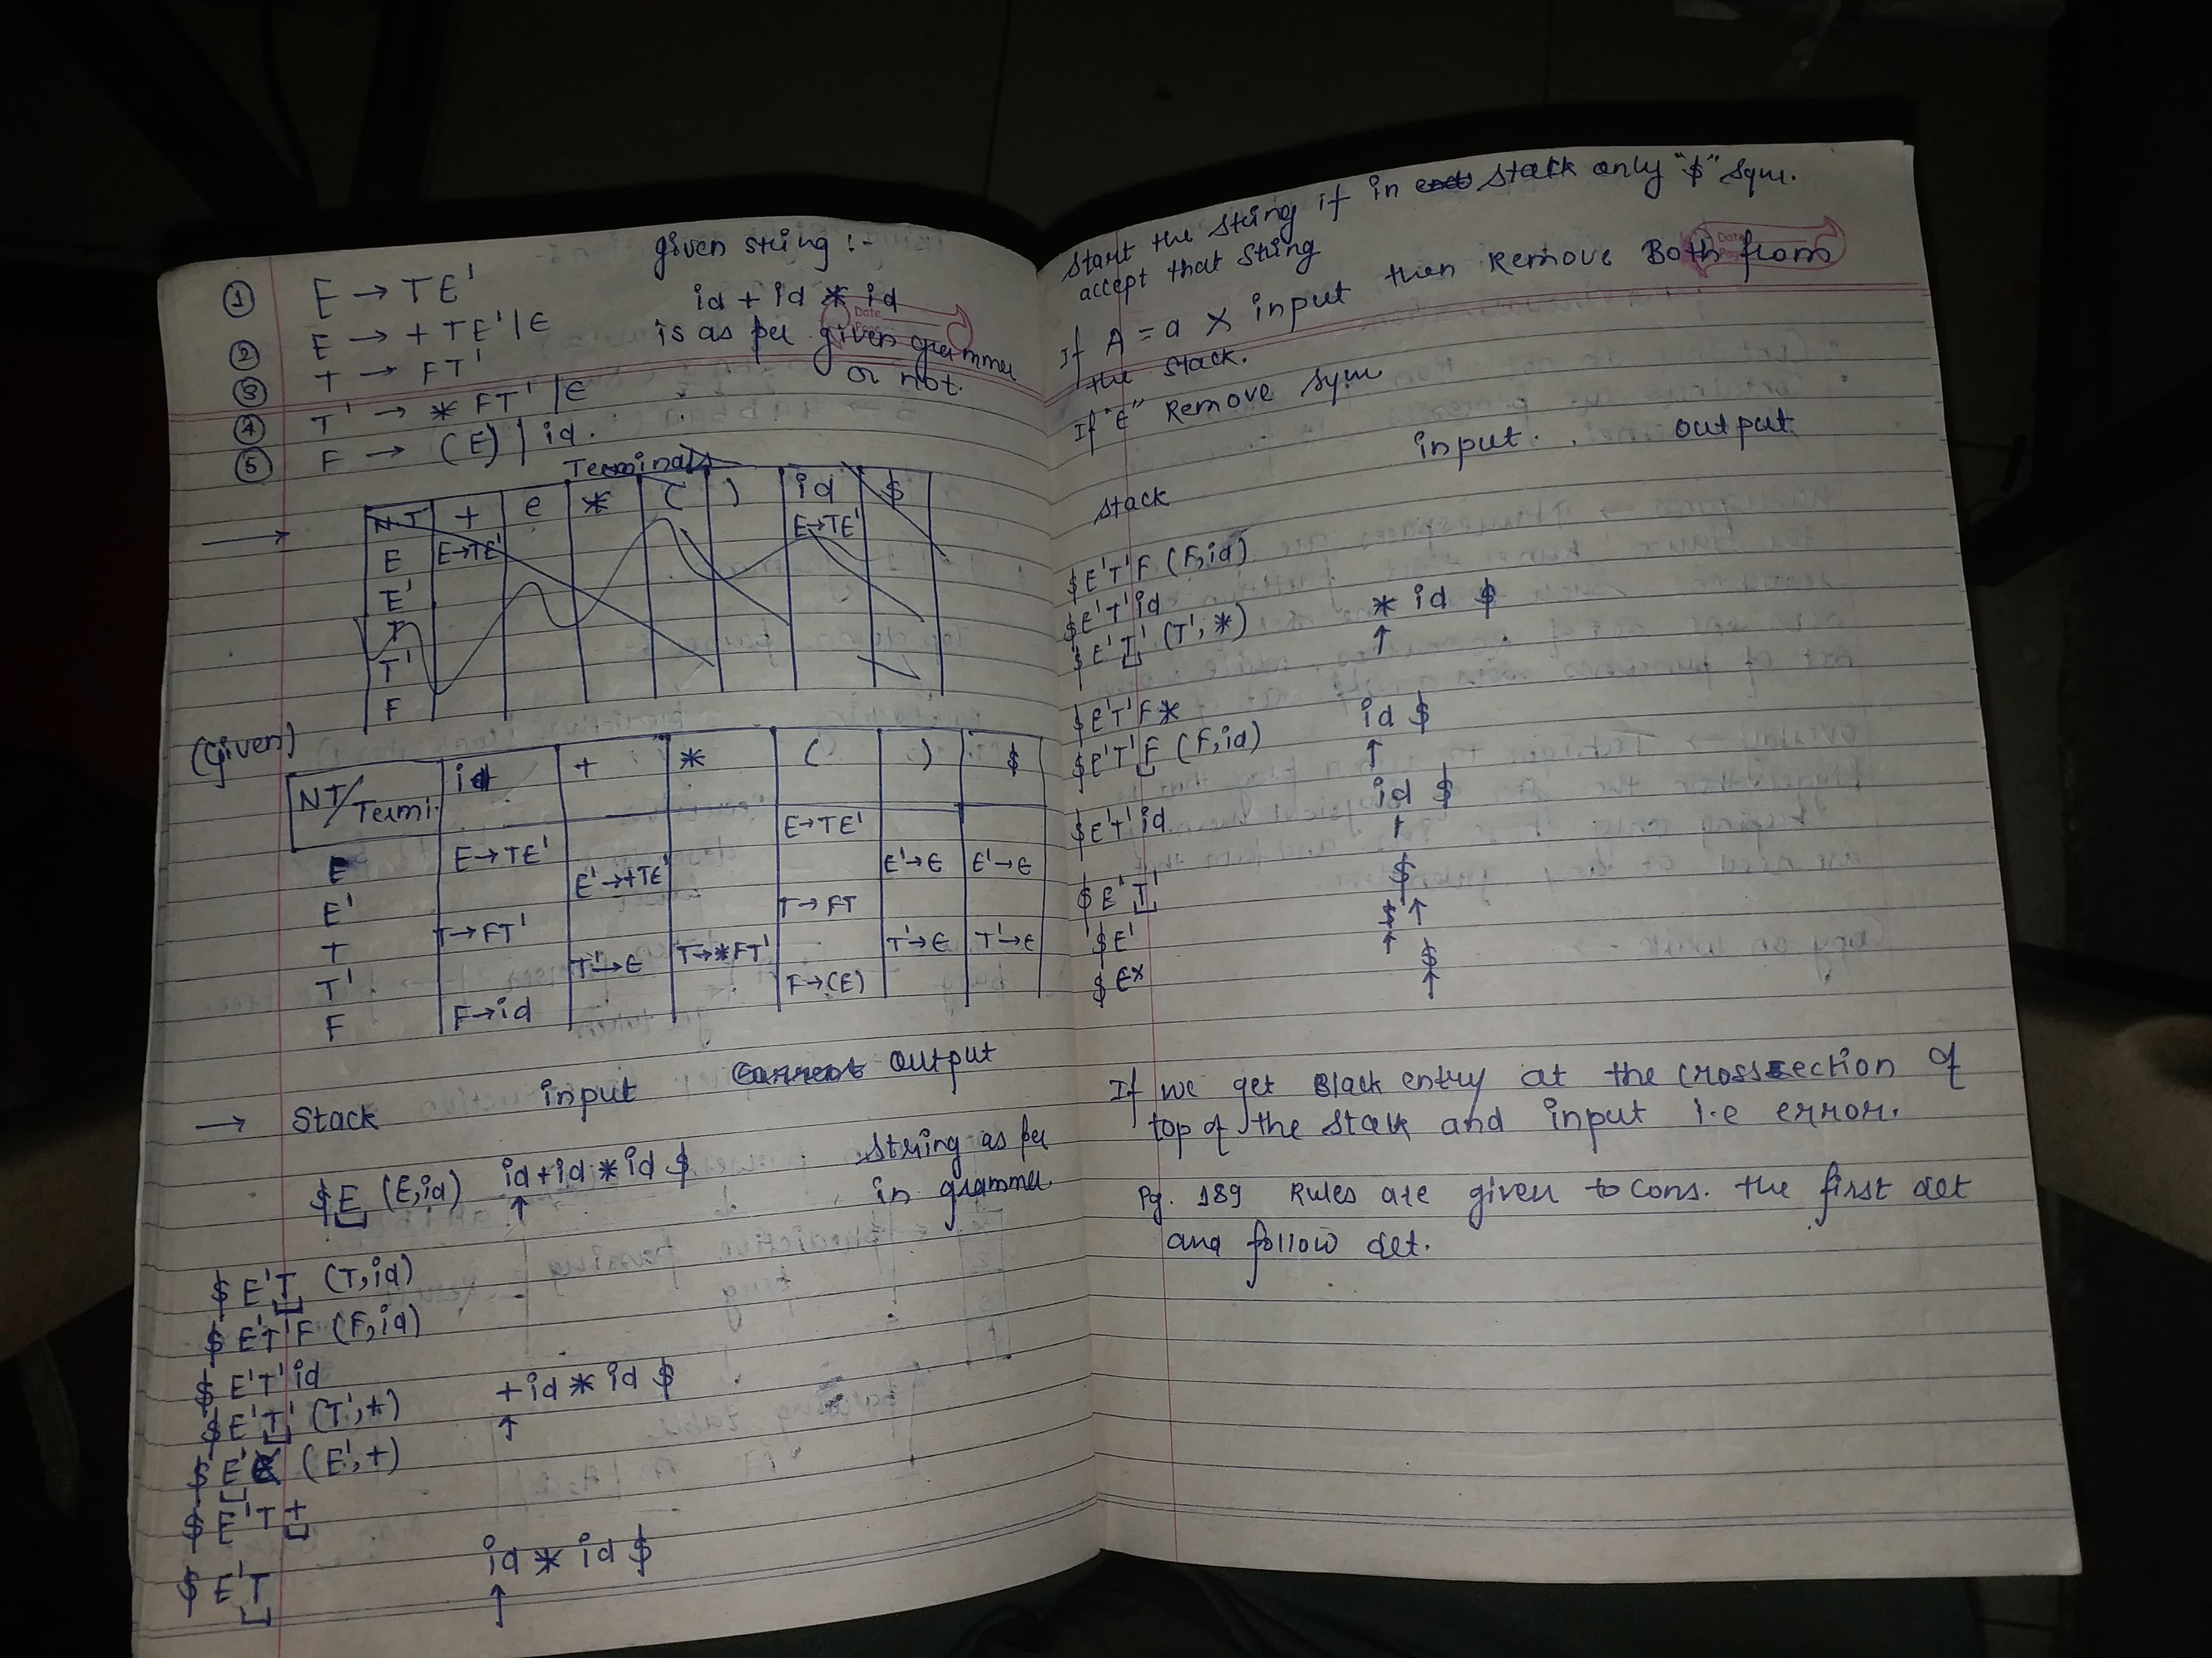 given string :-
① E → TE'
id + id * id
② E → + TE' | ϵ
is as per given grammer
or not.
③ T → FT'
④ T' → * FT' | ϵ
⑤ F → (E) | id.
Terminals
→ NT + e * ( ) id $
E E→TE' E→TE'
E'
T
T'
F
(Given)
NT/Termi. id + * ( ) $
E E→TE' E→TE'
E' E'→+TE' E'→ϵ E'→ϵ
T T→FT' T→FT
T' T'→ϵ T→*FT' T'→ϵ T'→ϵ
F F→id F→(E)
→ Stack input Current output
$E (E,id) id+id*id $ string as per
in grammer
$ E'T (T,id)
$ E'T'F (F,id)
$ E'T'id
$ E'T' (T',*) +id * id $
$ E' (E',+)
$ E'T+
$ E'T id * id $
Start the string if in stack only "$" sym.
accept that string
If A = a X input then Remove Both from
the stack.
If "ϵ" Remove sym
Stack input. output
$E'T'F (F,id)
$E'T'id
$E'T' (T',*) * id $
$E'T'F*
$E'T'F (F,id) id $
$E'T'id id $
$E'T' $
$E' $
$ϵx $
If we get Black entry at the crossection of
top of the stack and input i.e error.
Pg. 189 Rules are given to cons. the first det
and follow det.
Date
Page
Date
Page